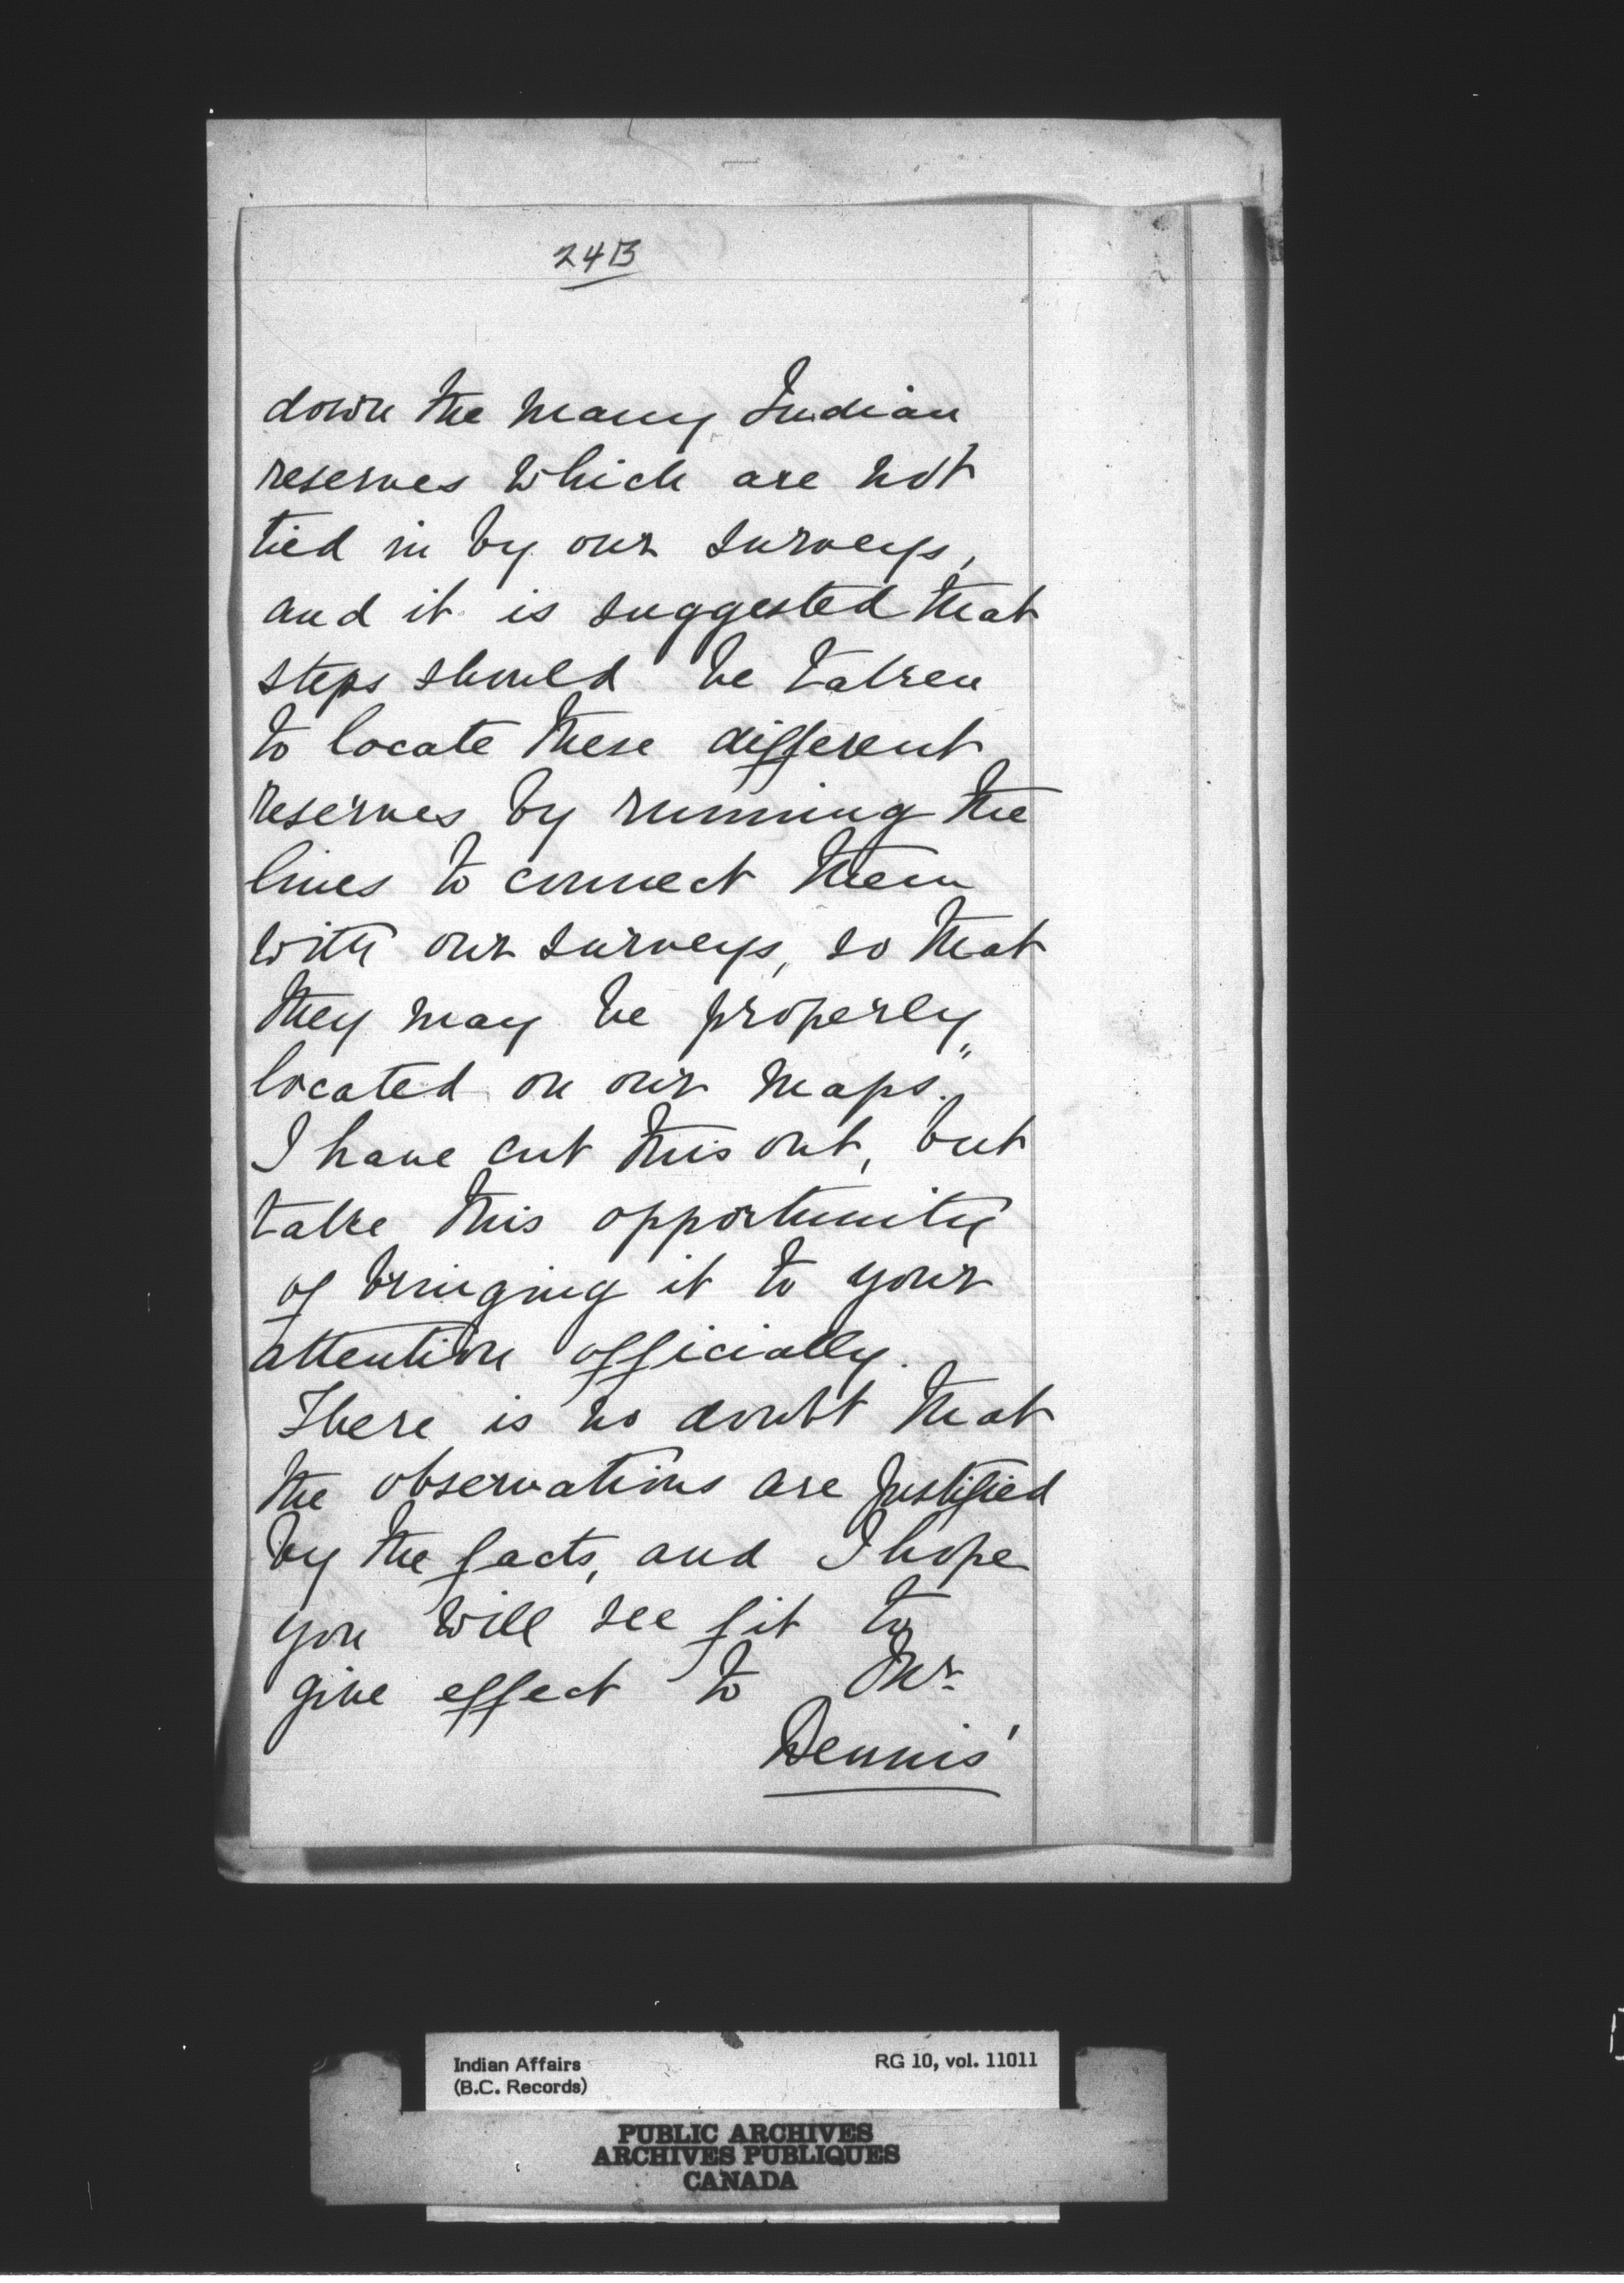 24B
down the many Indian
reserves which are not
tied in by our surveys,
and it is suggested that
steps should be taken
to locate these different
reserves by running the
lines to connect them
with our surveys, so that
they may be properly
located on our maps."
I have cut this out, but
take this opportunity
of bringing it to your
attention officially.
There is no doubt that
the observations are justified
by the facts, and I hope
you will see fit to
give effect to Mr.
Dennis'
Indian Affairs
(B.C. Records)
RG 10, vol. 11011
PUBLIC ARCHIVES
ARCHIVES PUBLIQUES
CANADA